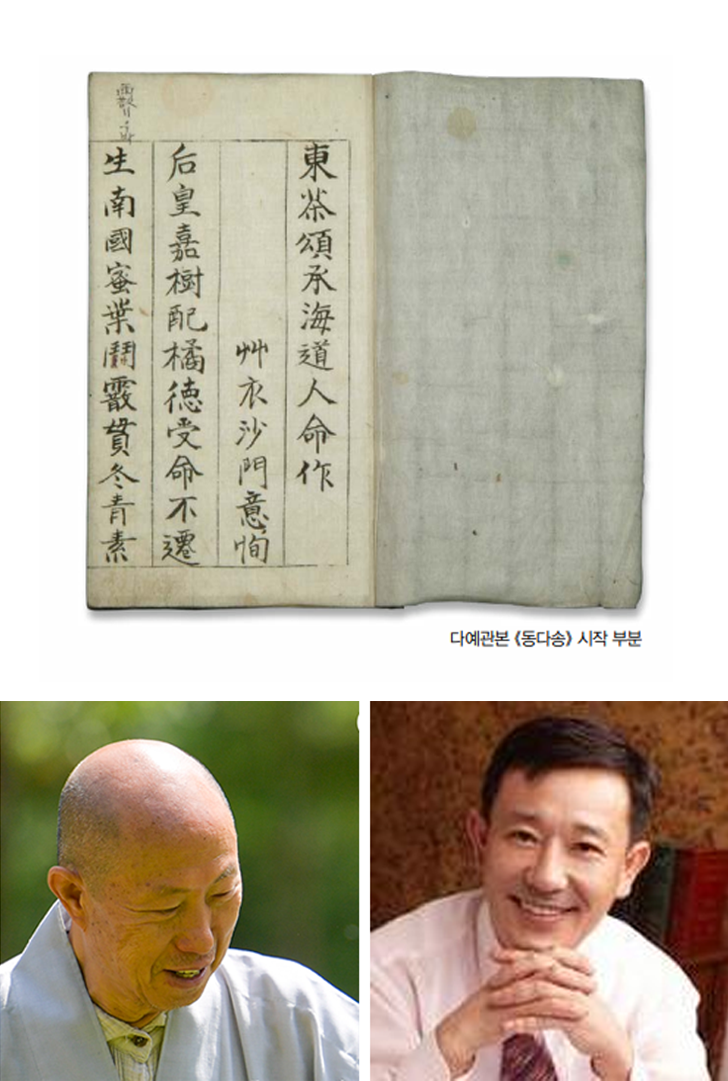 東茶頌承海道人命作
艸衣沙門意恂
后皇嘉樹配橘徳受命不遷
生南國蜜葉鬪霰貫冬青素
다예관본 《동다송》 시작 부분